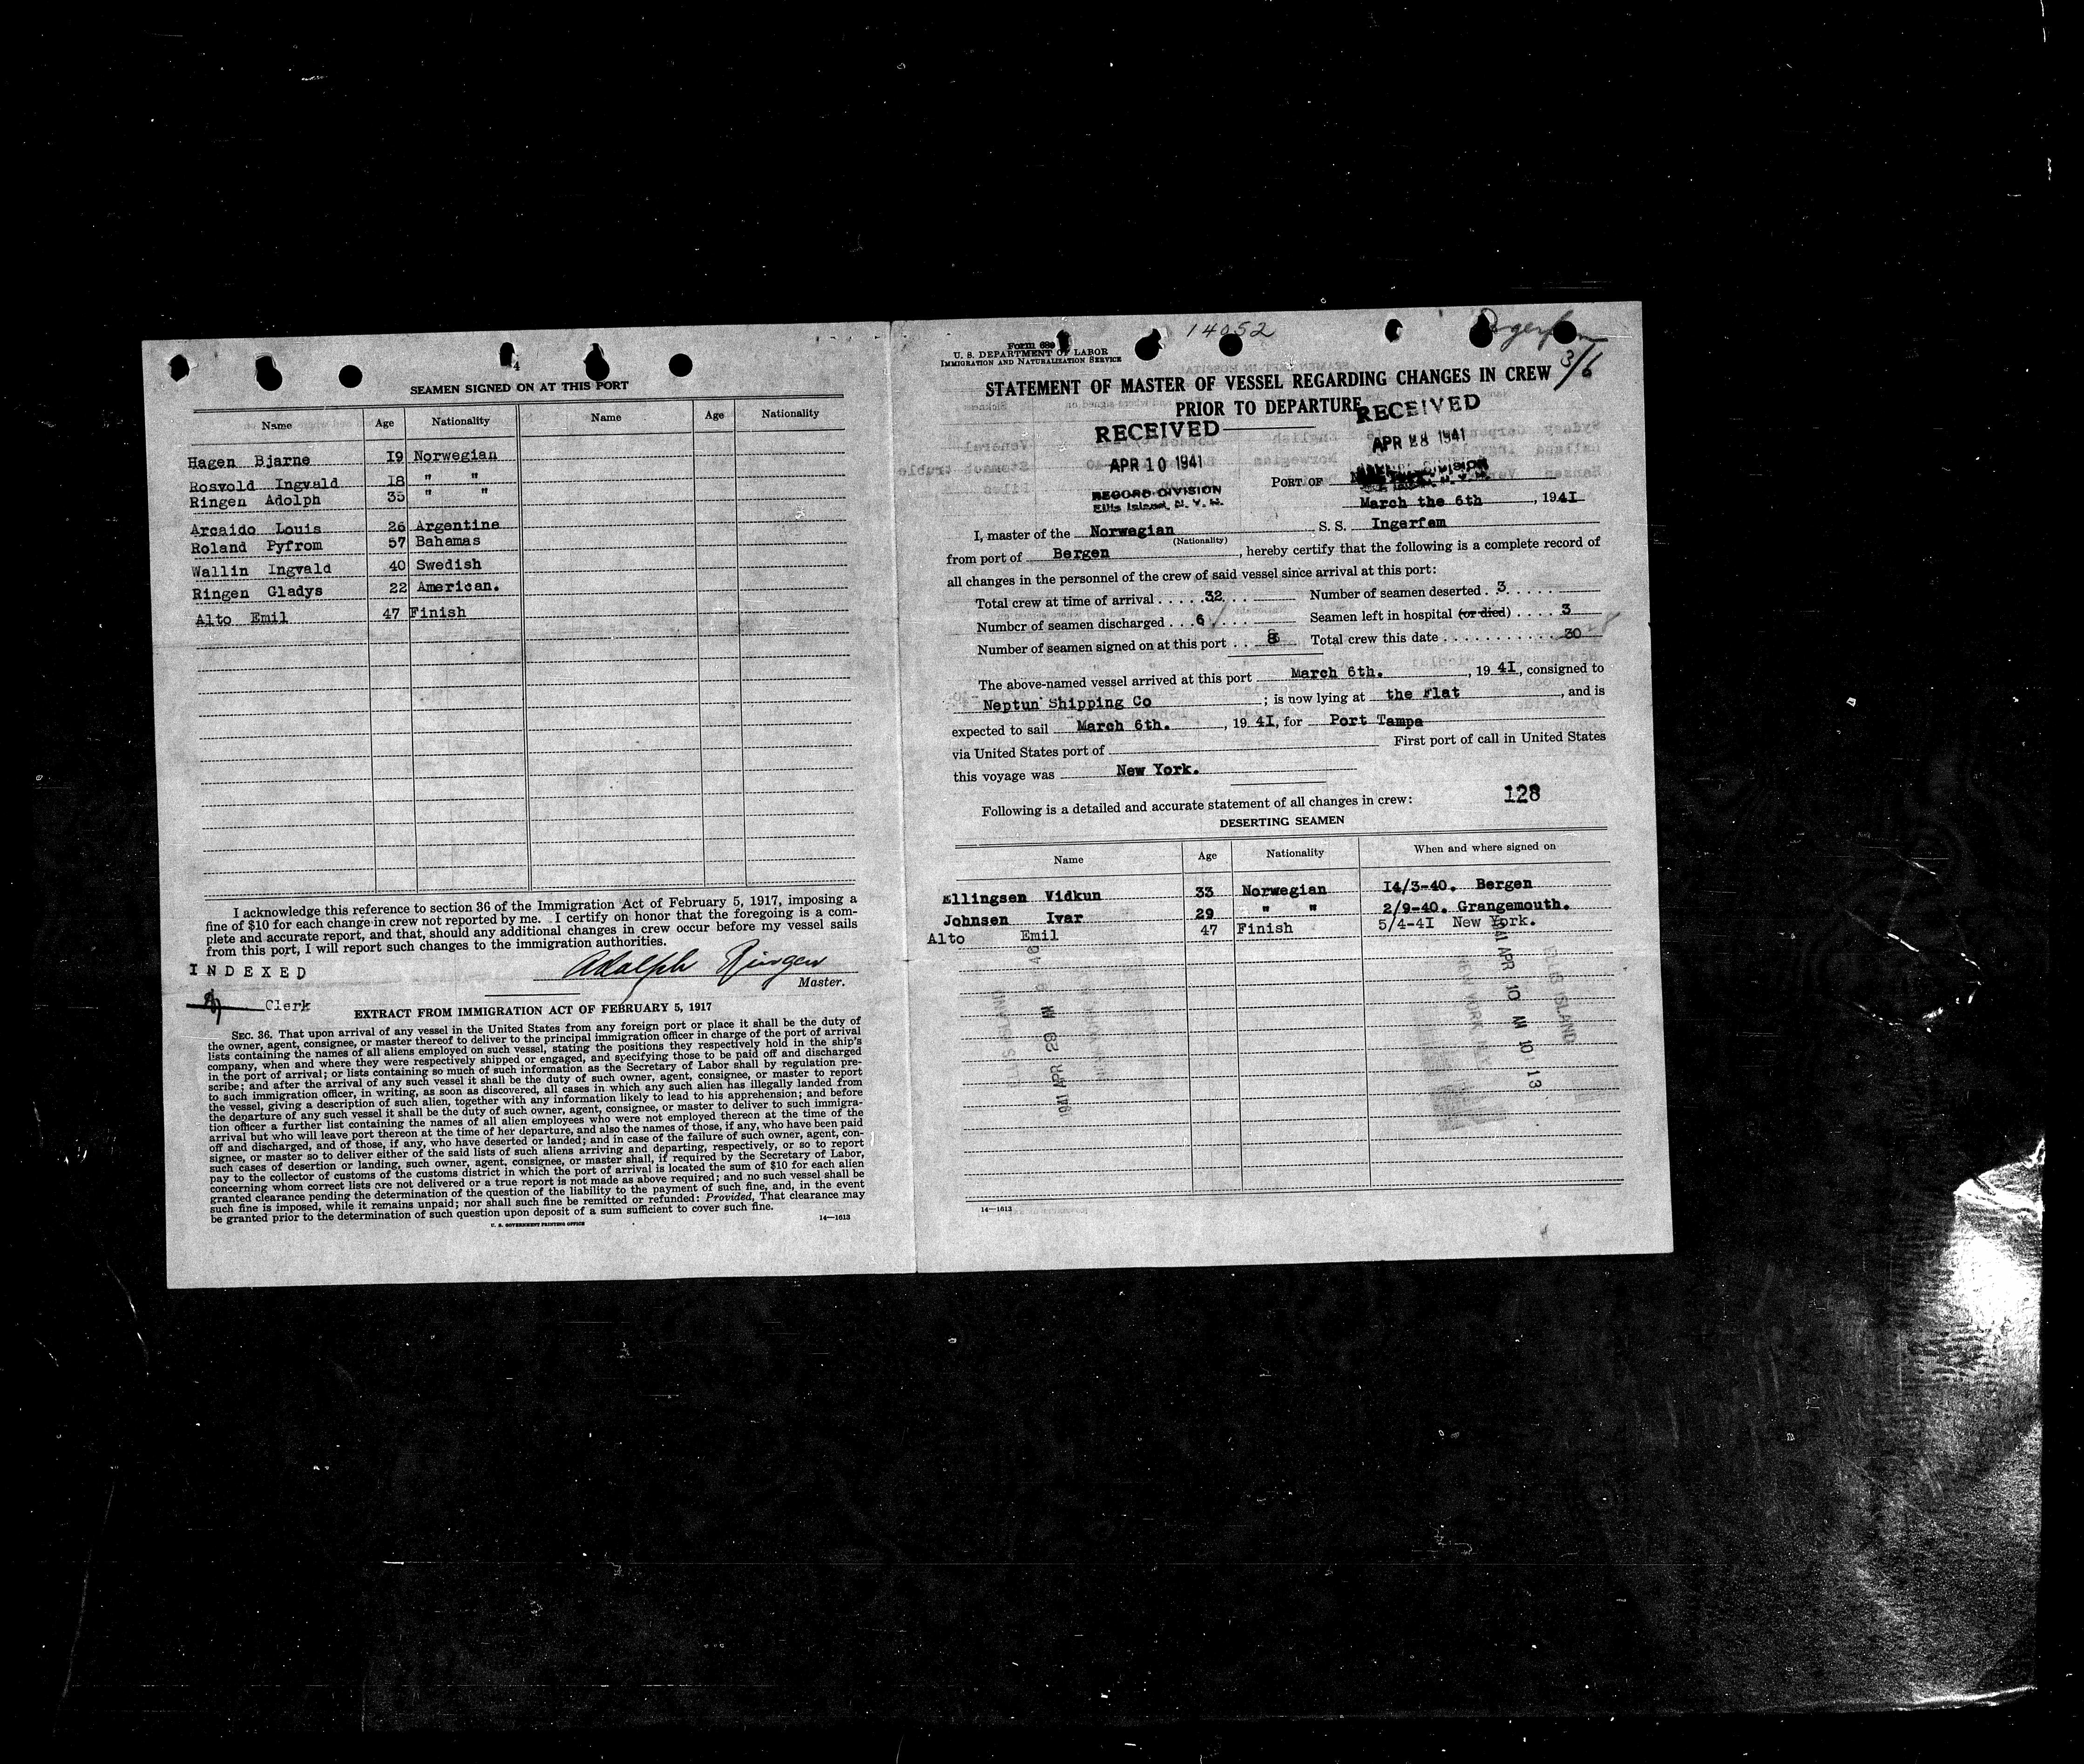 4
SEAMEN SIGNED ON AT THIS PORT
Name Age Nationality Name Age Nationality
Hagen Bjarne I9 Norwegian
Rosvold Ingvald I8 " "
Ringen Adolph 35 " "
Arcaido Louis 26 Argentine
Roland Pyfrom 57 Bahamas
Wallin Ingvald 40 Swedish
Ringen Gladys 22 American.
Alto Emil 47 Finish
I acknowledge this reference to section 36 of the Immigration Act of February 5, 1917, imposing a
fine of $10 for each change in crew not reported by me. I certify on honor that the foregoing is a com-
plete and accurate report, and that, should any additional changes in crew occur before my vessel sails
from this port, I will report such changes to the immigration authorities.
INDEXED
Adolph Ringen
Master.
Clerk
EXTRACT FROM IMMIGRATION ACT OF FEBRUARY 5, 1917
SEC. 36. That upon arrival of any vessel in the United States from any foreign port or place it shall be the duty of
the owner, agent, consignee, or master thereof to deliver to the principal immigration officer in charge of the port of arrival
lists containing the names of all aliens employed on such vessel, stating the positions they respectively hold in the ship's
company, when and where they were respectively shipped or engaged, and specifying those to be paid off and discharged
in the port of arrival; or lists containing so much of such information as the Secretary of Labor shall by regulation pre-
scribe; and after the arrival of any such vessel it shall be the duty of such owner, agent, consignee, or master to report
to such immigration officer, in writing, as soon as discovered, all cases in which any such alien has illegally landed from
the vessel, giving a description of such alien, together with any information likely to lead to his apprehension; and before
the departure of any such vessel it shall be the duty of such owner, agent, consignee, or master to deliver to such immigra-
tion officer a further list containing the names of all alien employees who were not employed thereon at the time of the
arrival but who will leave port thereon at the time of her departure, and also the names of those, if any, who have been paid
off and discharged, and of those, if any, who have deserted or landed; and in case of the failure of such owner, agent, con-
signee, or master so to deliver either of the said lists of such aliens arriving and departing, respectively, or so to report
such cases of desertion or landing, such owner, agent, consignee, or master shall, if required by the Secretary of Labor,
pay to the collector of customs of the customs district in which the port of arrival is located the sum of $10 for each alien
concerning whom correct lists are not delivered or a true report is not made as above required; and no such vessel shall be
granted clearance pending the determination of the question of the liability to the payment of such fine, and, in the event
such fine is imposed, while it remains unpaid; nor shall such fine be remitted or refunded: Provided, That clearance may
be granted prior to the determination of such question upon deposit of a sum sufficient to cover such fine.
U. S. GOVERNMENT PRINTING OFFICE 14—1613
14052
3/6
Form 689
U. S. DEPARTMENT OF LABOR
IMMIGRATION AND NATURALIZATION SERVICE
STATEMENT OF MASTER OF VESSEL REGARDING CHANGES IN CREW
PRIOR TO DEPARTURE
RECEIVED
APR 28 1941
RECEIVED
APR 10 1941
RECORD DIVISION
Ellis Island, N. Y. H.
PORT OF
March the 6th, 194I
I, master of the Norwegian S. S. Ingerfem
(Nationality)
from port of Bergen, hereby certify that the following is a complete record of
all changes in the personnel of the crew of said vessel since arrival at this port:
Total crew at time of arrival 32 Number of seamen deserted 3
Number of seamen discharged 6 Seamen left in hospital (or died) 3
Number of seamen signed on at this port 8 Total crew this date 30
The above-named vessel arrived at this port March 6th., 19 4I, consigned to
Neptun Shipping Co; is now lying at the Flat, and is
expected to sail March 6th., 19 4I, for Port Tampa
via United States port of First port of call in United States
this voyage was New York.
Following is a detailed and accurate statement of all changes in crew: 128
DESERTING SEAMEN
Name Age Nationality When and where signed on
Ellingsen Vidkun 33 Norwegian I4/3-40. Bergen
Johnsen Ivar 29 " " 2/9-40. Grangemouth.
Alto Emil 47 Finish 5/4-4I New York.
1941 APR 29 AM 9 46
1941 APR 10 AM 10 13
ELLIS ISLAND
14—1613